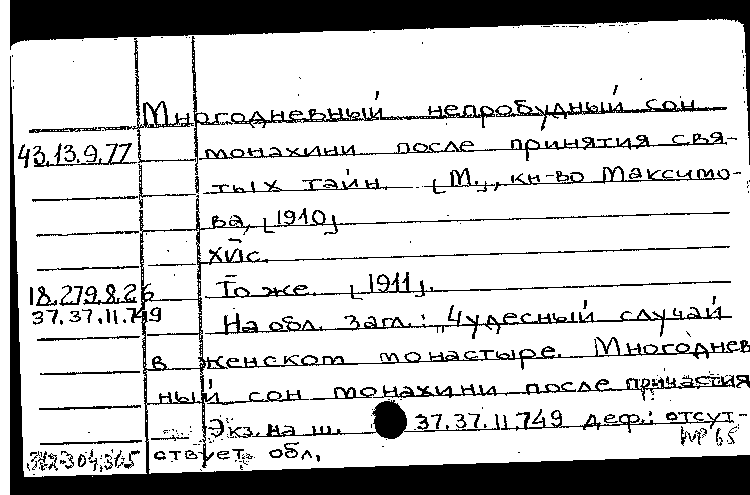 Многодневный непробудный сон
43.13.9.77 монахини после принятия свя-
тых тайн. [М.], кн-во Максимо-
ва, [1910]
18.279.8.26 То же. [1911].
37.37.11.749 На обл. загл.: „Чудесный случай
в женском монастыре. Многоднев
ный сон монахини после причастия
Экз. на ш. 37.37.11.749 деф.: отсут-
ствует обл.